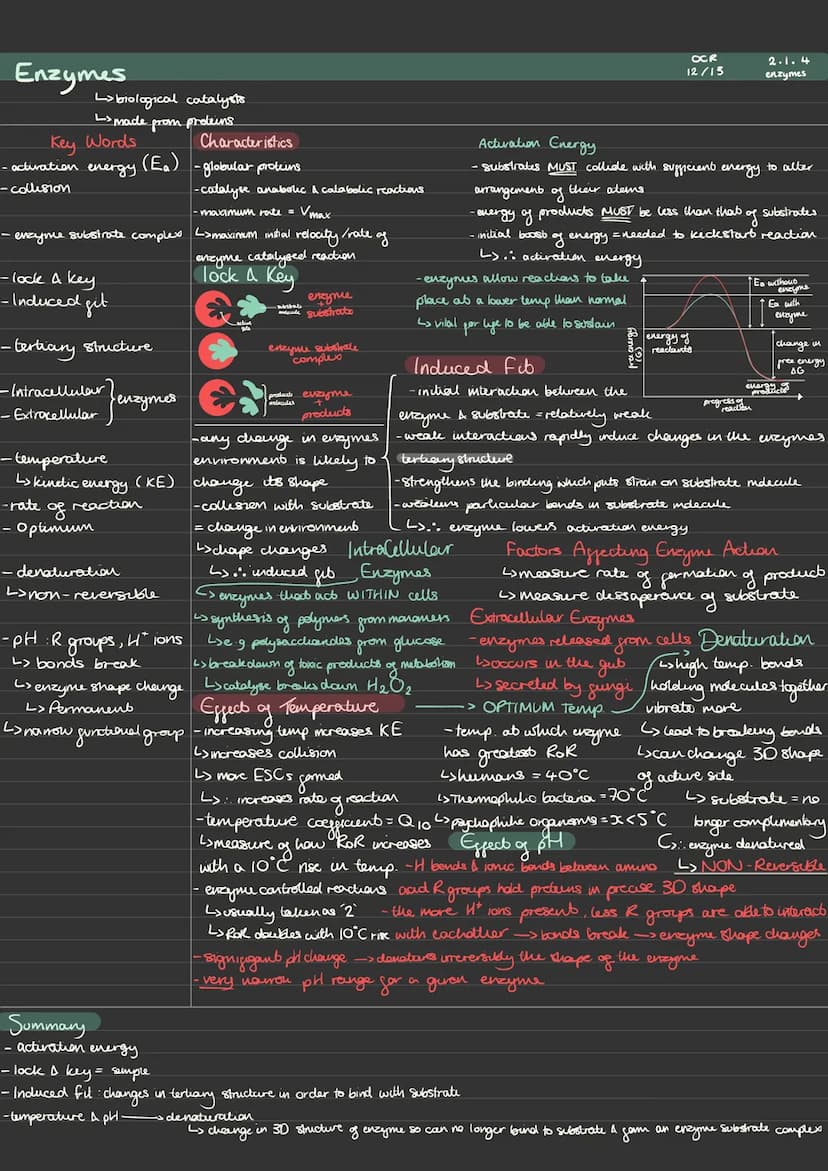 Enzymes
OCR
12/15
2.1.4
enzymes
↳biological catalysts
↳made from proteins
Key Words
- activation energy (Ea)
- collision
- enzyme substrate complex
- lock & key
- Induced fit
- tertiary structure
- Intracellular
- Extracellular
} enzymes
- temperature
↳kinetic energy (KE)
- rate of reaction
- Optimum
- denaturation
↳non-reversible
- pH : R groups, H⁺ ions
↳ bonds break
↳ enzyme shape change
↳ Permanent
↳narrow functional group
Characteristics
- globular proteins
- catalyse anabolic & catabolic reactions
- maximum rate = Vmax
↳maximum initial velocity/rate of
enzyme catalysed reaction
Activation Energy
- substrates MUST collide with sufficient energy to alter
arrangement of their atoms
- energy of products MUST be less than that of substrates
- initial boost of energy = needed to kickstart reaction
↳ ∴ activation energy
- enzymes allow reactions to take
place at a lower temp than normal
↳ vital for life to be able to sustain
free energy (G)
energy of
reactants
Ea without
enzyme
Ea with
enzyme
change in
free energy
ΔG
energy of
products
progress of
reaction
lock & Key
substrate
molecule
active
site
enzyme
+
substrate
enzyme substrate
complex
products
molecules
enzyme
+
products
- any change in enzymes
environment is likely to
change its shape
- collision with substrate
= change in environment
↳shape changes
↳ ∴ induced fit
Induced Fit
- initial interaction between the
enzyme & substrate = relatively weak
- weak interactions rapidly induce changes in the enzymes
tertiary structure
- strengthens the binding which puts strain on substrate molecule
- weakens particular bonds in substrate molecule
↳ ∴ enzyme lowers activation energy
IntraCellular
Enzymes
↳ enzymes that act WITHIN cells
↳synthesis of polymers from monomers
↳e.g polysaccharides from glucose
↳breakdown of toxic products of metabolism
↳catalyse breaks down H₂O₂
Factors Affecting Enzyme Action
↳measure rate of formation of product
↳ measure dissaperance of substrate
Extracellular Enzymes
- enzymes released from cells
↳occurs in the gut
↳ secreted by fungi
Denaturation
↳high temp. bonds
holding molecules together
vibrate more
↳ lead to breaking bonds
↳can change 3D shape
of active site
↳ substrate = no
longer complimentary
∴ enzyme denatured
↳ NON-Reversible
Effect of Temperature
- increasing temp increases KE
↳increases collision
↳ more ESCs formed
↳ ∴ increases rate of reaction
- temperature coefficient = Q10
↳measure of how RoR increases
with a 10°C rise in temp.
- enzyme controlled reactions
↳usually taken as '2'
↳RoR doubles with 10°C rise
→ OPTIMUM Temp.
- temp. at which enzyme
has greatest RoR
↳humans = 40°C
↳Thermophilic bacteria = 70°C
↳psychophilic organisms = x<5°C
Effect of pH
- H bonds & ionic bonds between amino
acid R groups hold proteins in precise 3D shape
- the more H⁺ ions present, less R groups are able to interact
with eachother → bonds break → enzyme shape changes
- significant pH change → denatures irreversibly the shape of the enzyme
- very narrow pH range for a given enzyme
Summary
- activation energy
- lock & key = simple
- Induced fit : changes in tertiary structure in order to bind with substrate
- temperature & pH → denaturation
↳ change in 3D structure of enzyme so can no longer bind to substrate & form an enzyme substrate complex